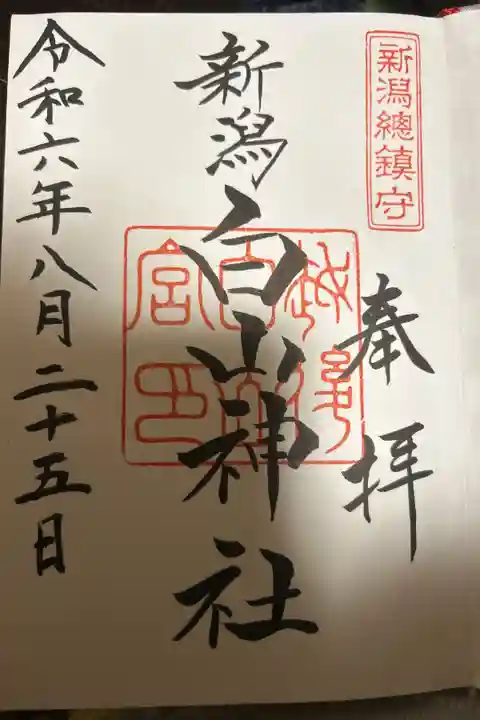 新潟總鎮守
奉拝
越後
白山
宮印
新潟白山神社
令和六年八月二十五日